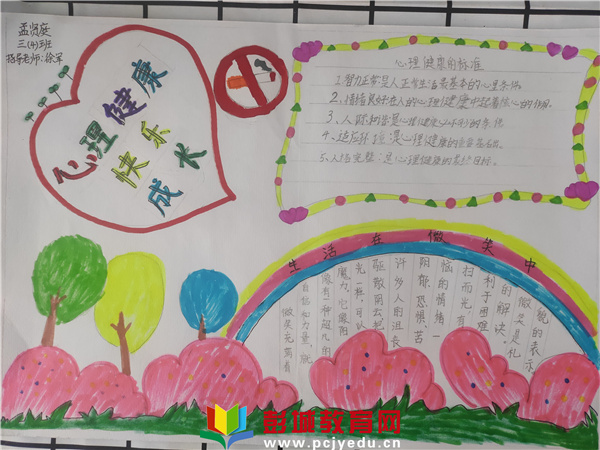 孟贤庭
三(4)班
指导老师:徐军
心理健康
快乐
成长
心理健康的标准
1、智力正常是人正常生活最基本的心里条件。
2、情绪良好在人的心理健康中起着核心的作用。
3、人际和谐是心理健康必不可少的条件
4、适应环境是心理健康的重要基础。
5、人格完整:是心理健康的最终目标。
生活在微笑中
微笑是礼
貌的表示
利于困难
的解决,
扫而光有
恼的情绪一
阴郁、恐惧、苦
许多人的沮丧
驱散
光一样,可以
魔力,它像阳
像有一种超凡的
自信和力量,就
微笑充满着
彭城教育网
www.pcjyedu.cn